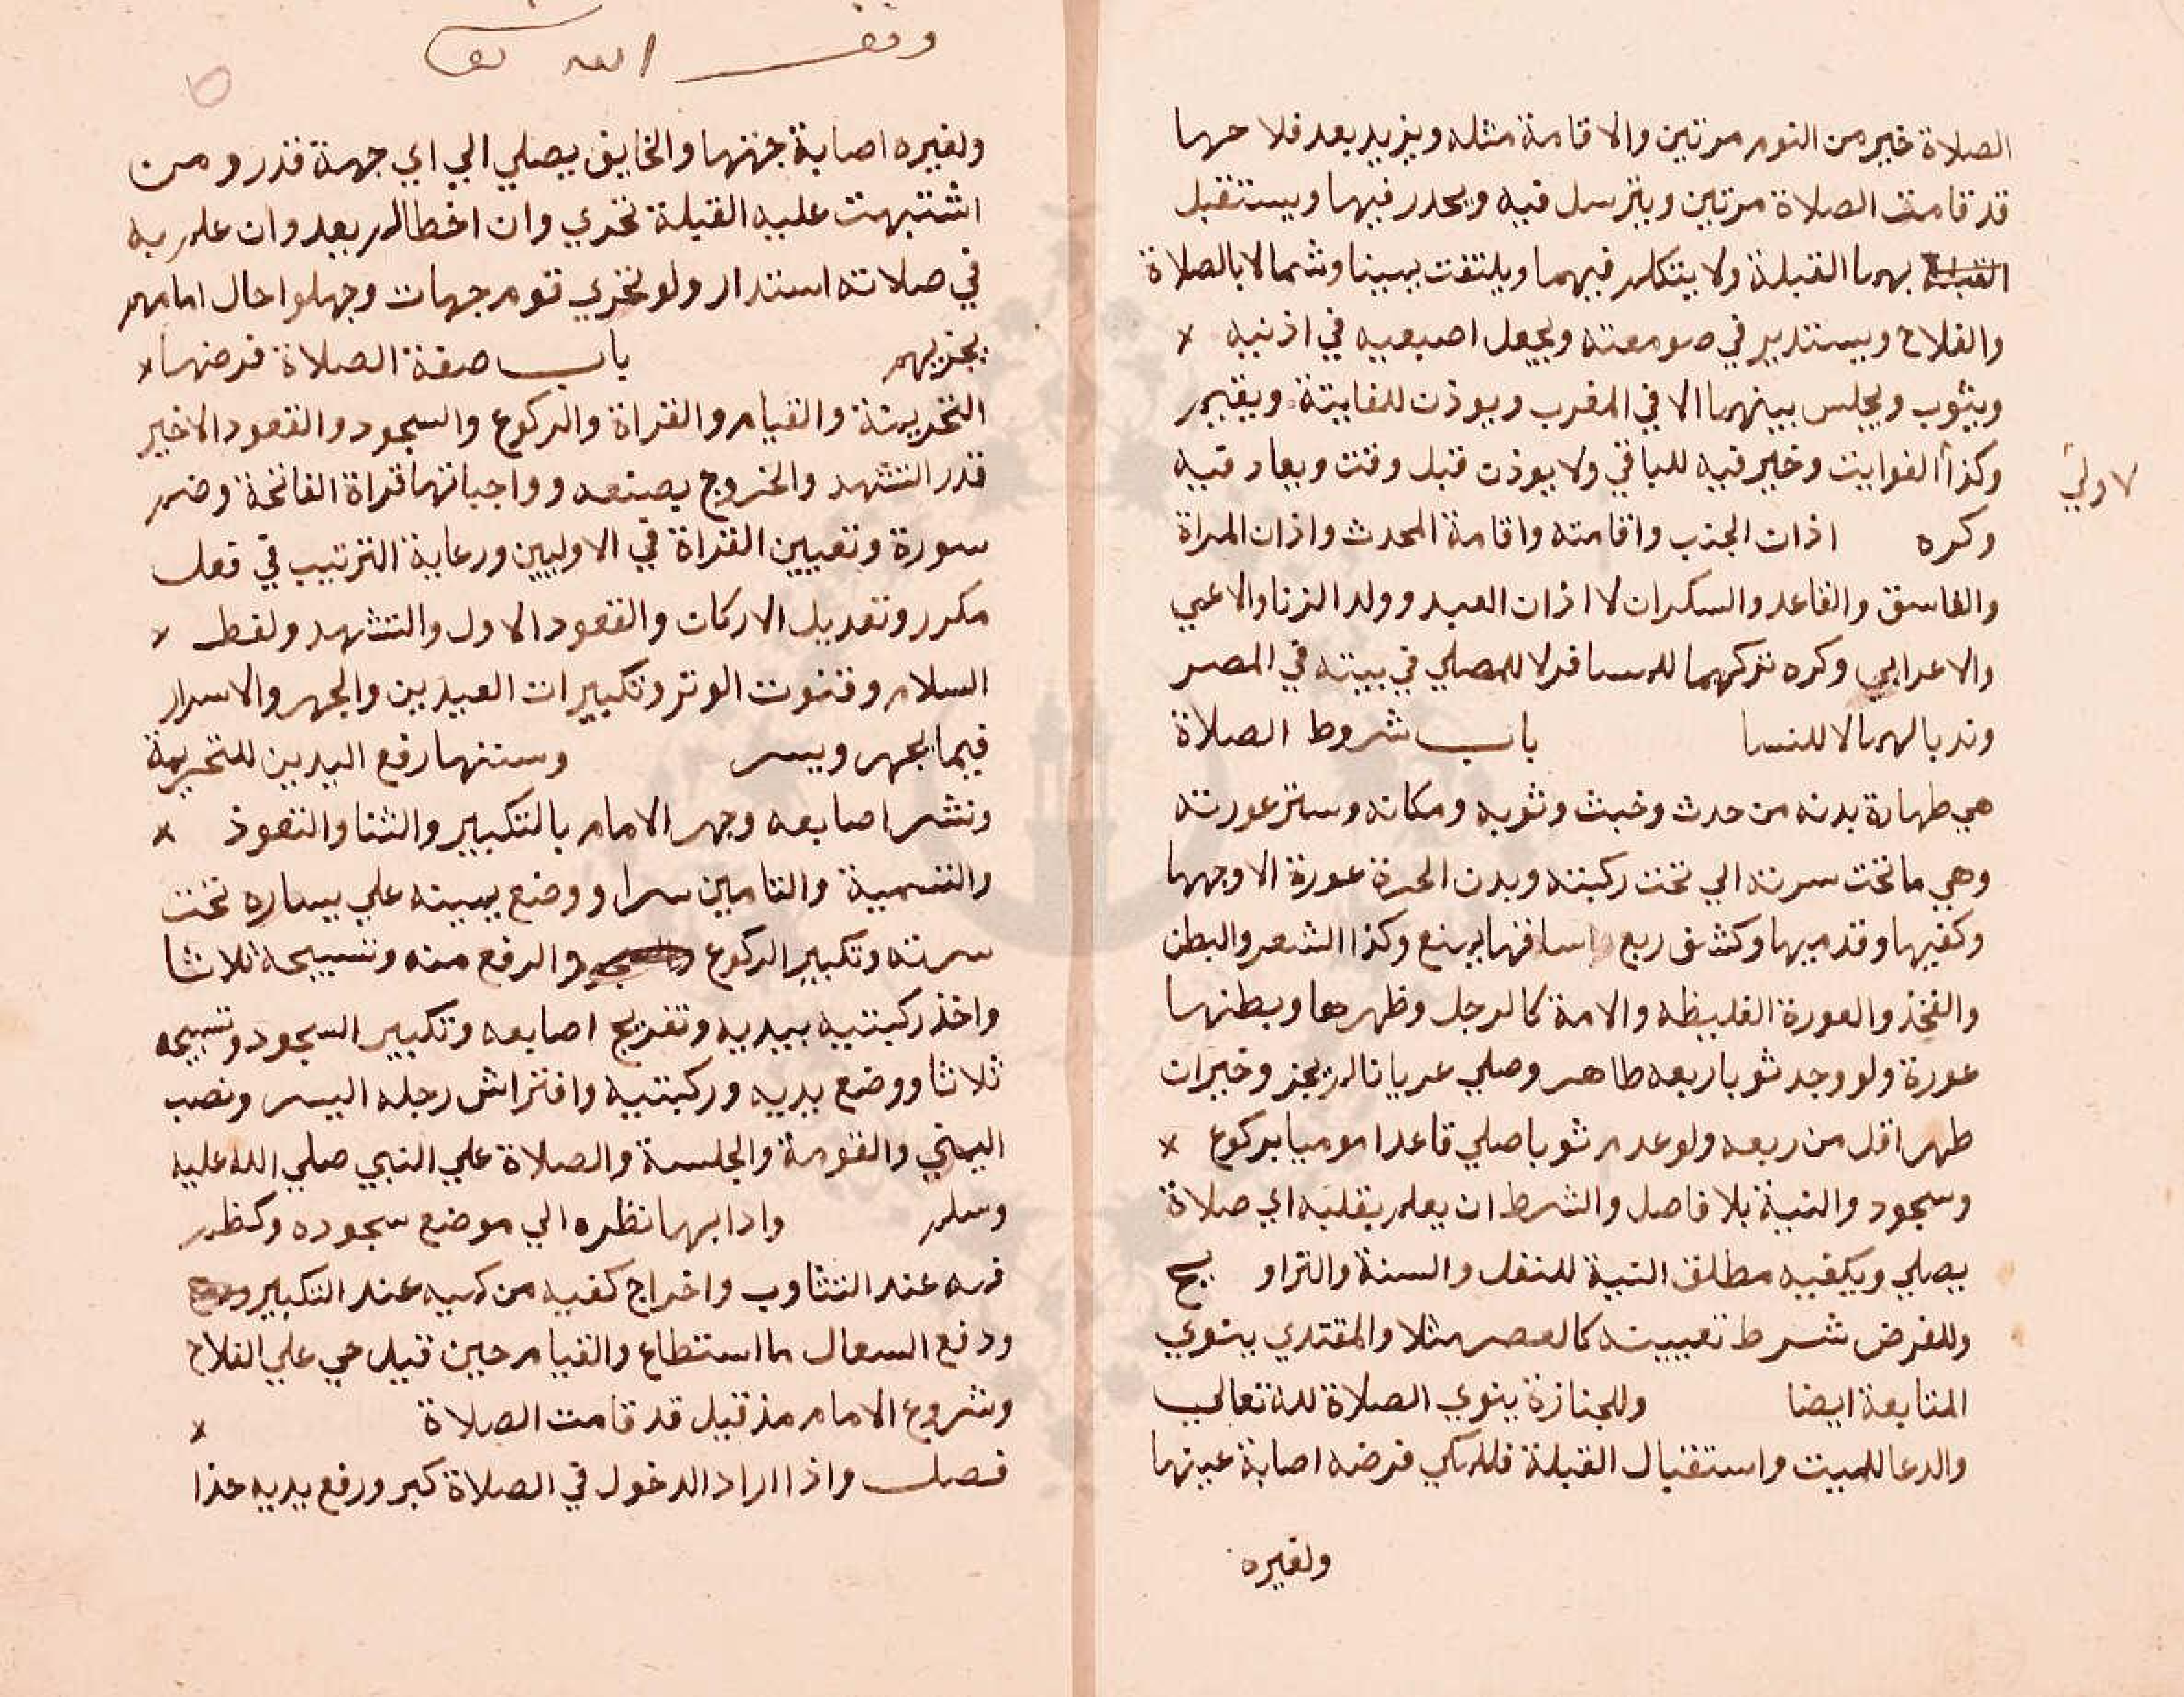 الصلاة خير من النوم مرتين والاقامة مثله ويزيد بعد فلاحها
قد قامت الصلاة مرتين ويترسل فيه ويحدر فيها ويستقبل
القبلة بهما القبلة ولا يتكلم فيهما ويلتفت يمينا وشمالا بالصلاة
والفلاح ويستدير في صومعته ويجعل اصبعيه في اذنيه
ويثوب ويجلس بينهما الا في المغرب ويوذن للفايتة ويقيم
لاولي
وكذا الفوايت وخير فيه للباقي ولا يوذن قبل وقت ويعاد فيه
وكره اذان الجنب واقامته واقامة المحدث واذان المراة
والفاسق والقاعد والسكران لا اذان العبد وولد الزنا والاعمي
والاعرابي وكره تركهما للمسافر لا للمصلي في بيته في المصر
وندبا لهما لا للنسا باب شروط الصلاة
هي طهارة بدنه من حدث وخبث وثوبه ومكانه وستر عورته
وهي ما تحت سرته الي تحت ركبته وبدن الحرة عورة الا وجهها
وكفيها وقدميها وكشف ربع ساقها يمنع وكذا الشعر والبطن
والفخذ والعورة الغليظه والامة كالرجل وظهرها وبطنها
عورة ولو وجد ثوبا ربعه طاهر وصلي عريانا لم يجز وخير ان
طهر اقل من ربعه ولو عدم ثوبا صلي قاعدا موميا بركوع
وسجود والنية بلا فاصل والشرط ان يعلم بقلبه اي صلاة
يصلي ويكفيه مطلق النية للنفل والسنة والتراويح
وللفرض شرط تعيينه كالعصر مثلا والمقتدي ينوي
المتابعة ايضا وللجنازة ينوي الصلاة لله تعالي
والدعا للميت واستقبال القبلة فللمكي فرضه اصابة عينها
ولغيره
وقف الله تعا
ولغيره اصابة جهتها والخايف يصلي الي اي جهة قدر ومن
اشتبهت عليه القبلة تحري وان اخطا لم يعد وان علم به
في صلاته استدار ولو تحري قوم جهات وجهلوا حال امامهم
يجزيهم باب صفة الصلاة فرضها
التحريمة والقيام والقراة والركوع والسجود والقعود الاخير
قدر التشهد والخروج بصنعه وواجباتها قراة الفاتحة وضم
سورة وتعيين القراة في الاوليين ورعاية الترتيب في فعل
مكرر وتعديل الاركان والقعود الاول والتشهد ولفظ
السلام وقنوت الوتر وتكبيرات العيدين والجهر والاسرار
فيما يجهر ويسر وسننها رفع اليدين للتحريمة
ونشر اصابعه وجهر الامام بالتكبير والثنا والتعوذ
والتسمية والتامين سرا ووضع يمينه علي يساره تحت
سرته وتكبير الركوع والرفع منه وتسبيحه ثلاثا
واخذ ركبتيه بيديه وتفريج اصابعه وتكبير السجود وتسبيحه
ثلاثا ووضع يديه وركبتيه وافتراش رجله اليسر ونصب
اليمني والقومة والجلسة والصلاة علي النبي صلي الله عليه
وسلم وادابها نظره الي موضع سجوده وكظم
فمه عند التثاوب واخراج كفيه من كميه عند التكبير
ودفع السعال ما استطاع والقيام حين قيل حي علي الفلاح
وشروع الامام مذ قيل قد قامت الصلاة
فصل واذا اراد الدخول في الصلاة كبر ورفع يديه حذا